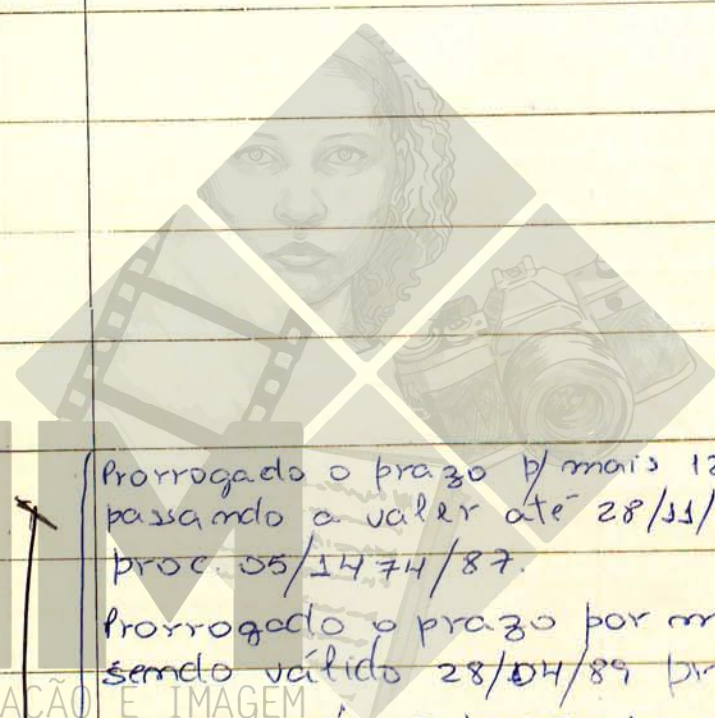 Prorrogado o prazo p/ mais 12
passando a valer até 28/11/
proc. 05/1474/87.
Prorrogado o prazo por m
sendo válido 28/04/89 pr
AÇÃO E IMAGEM